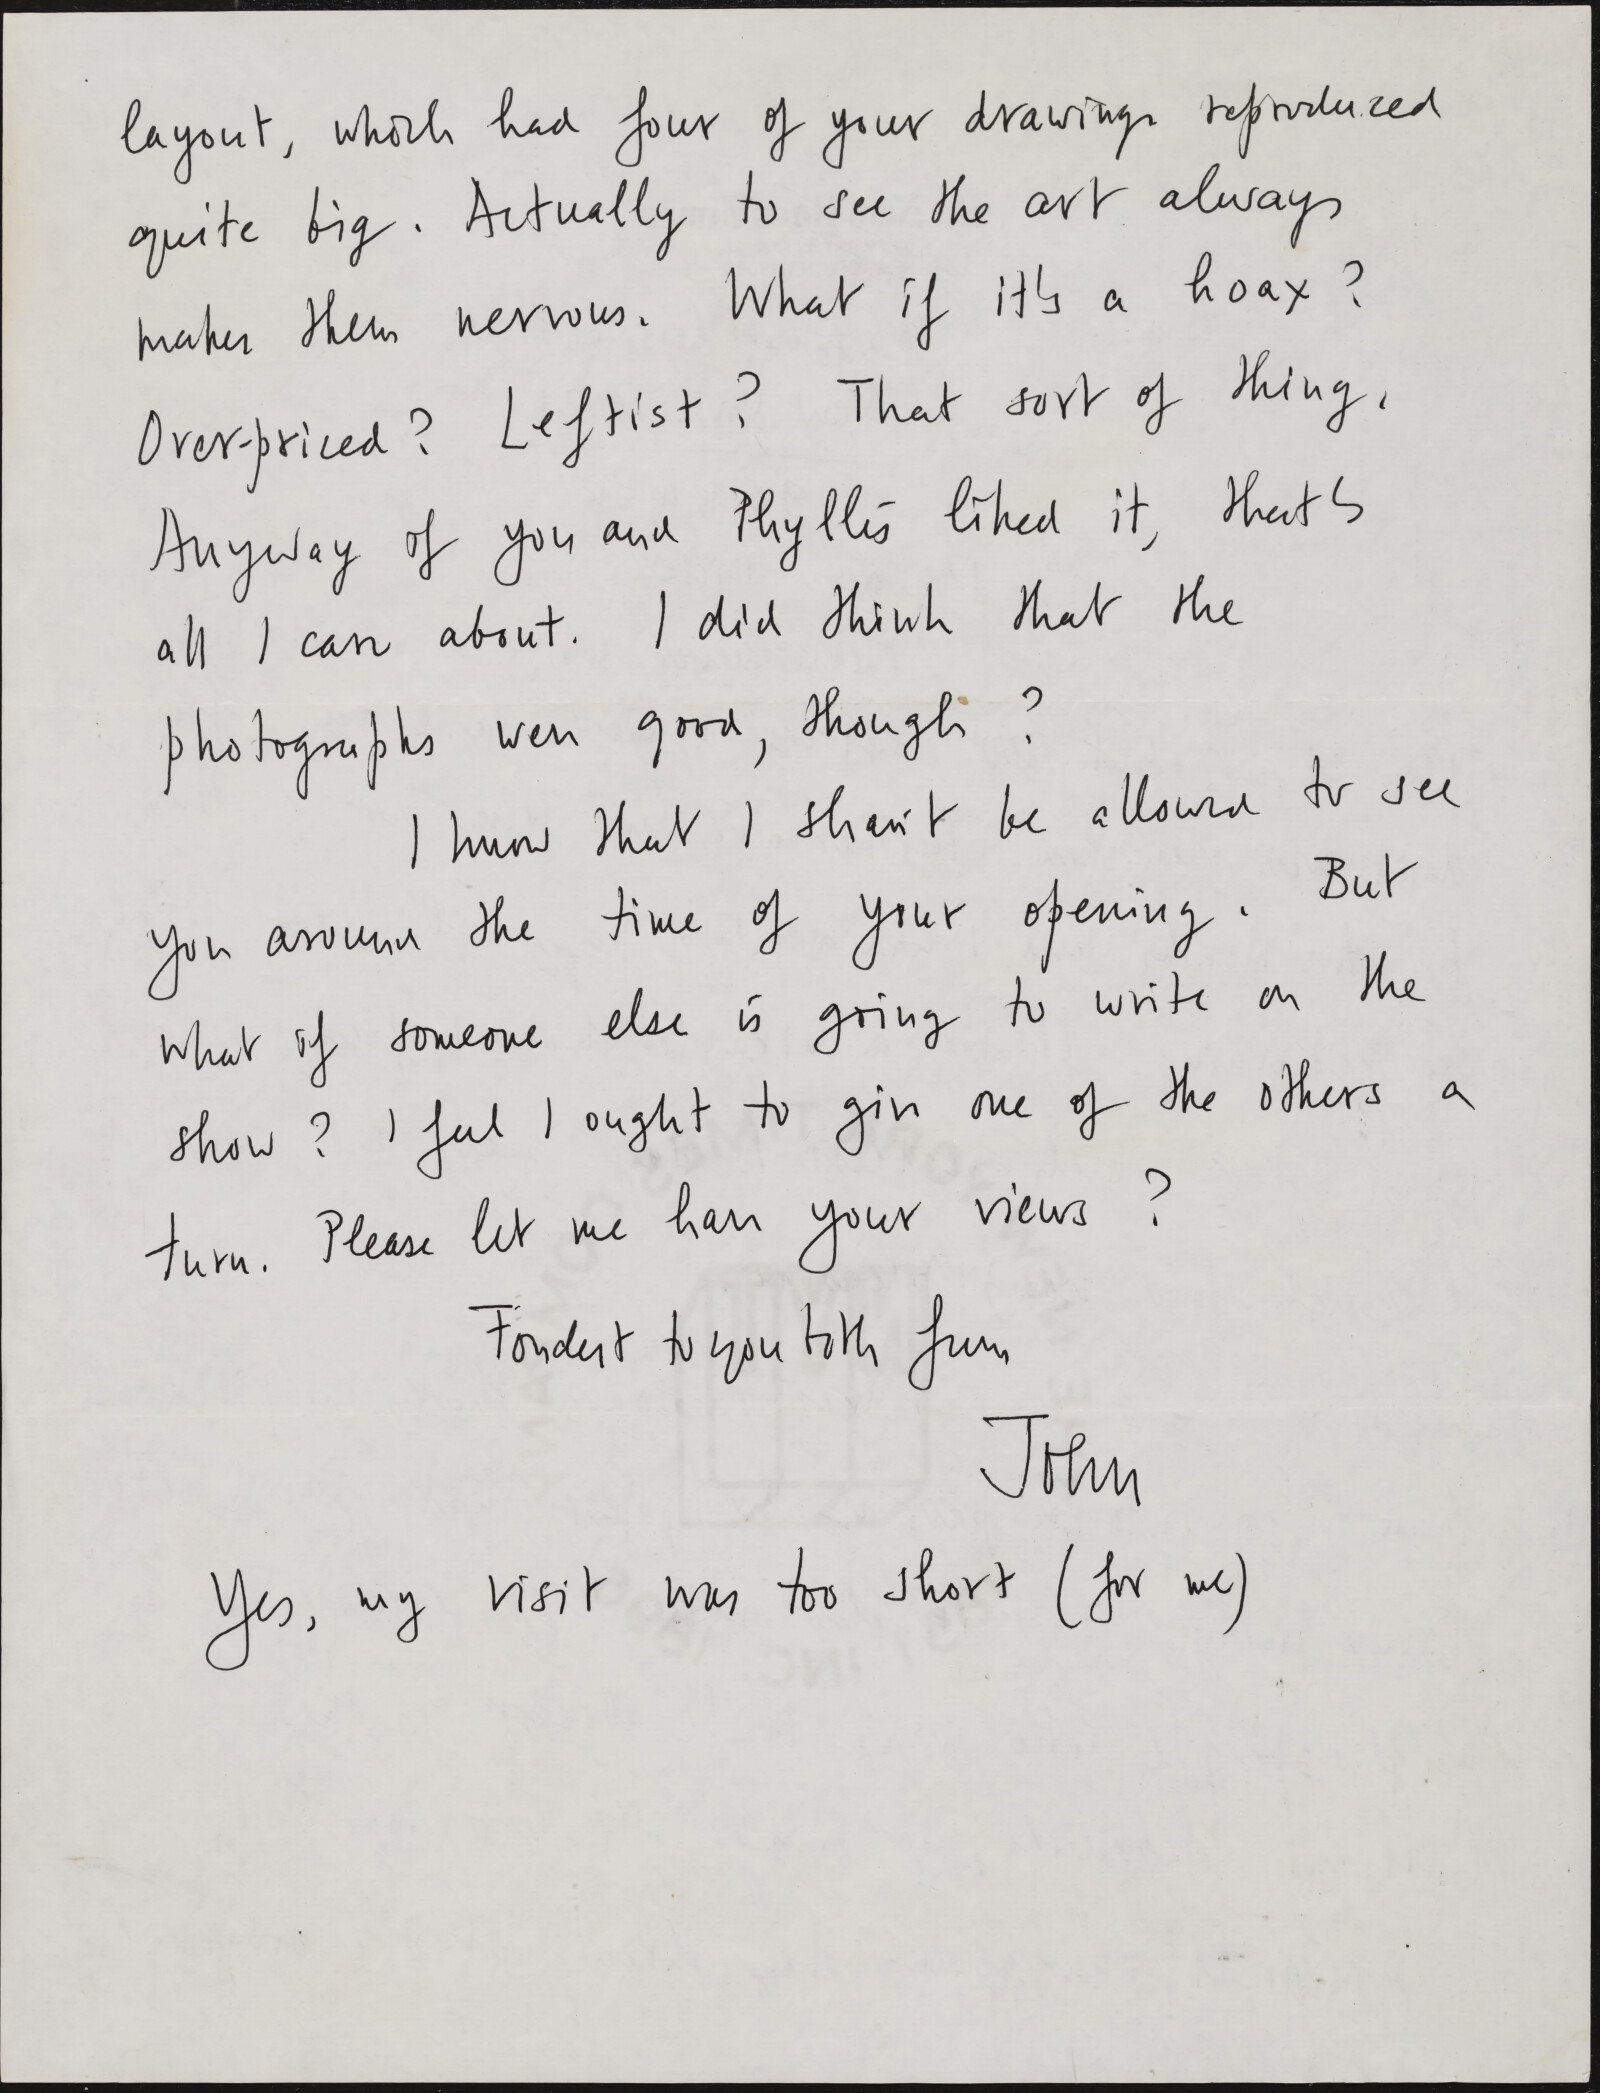 layout, which had four of your drawings reproduced
quite big. Actually to see the art always
makes them nervous. What if it's a hoax?
Over-priced? Leftist? That sort of thing.
Anyway if you and Phyllis liked it, that's
all I care about. I did think that the
photographs were good, though?
I know that I shan't be allowed to see
you around the time of your opening. But
what if someone else is going to write on the
show? I feel I ought to give one of the others a
turn. Please let me have your views?
Fondest to you both from
John
Yes, my visit was too short (for me)